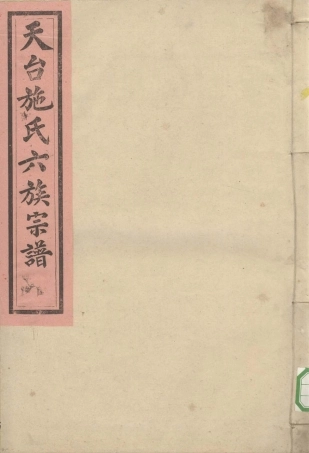 天台施氏六族宗譜